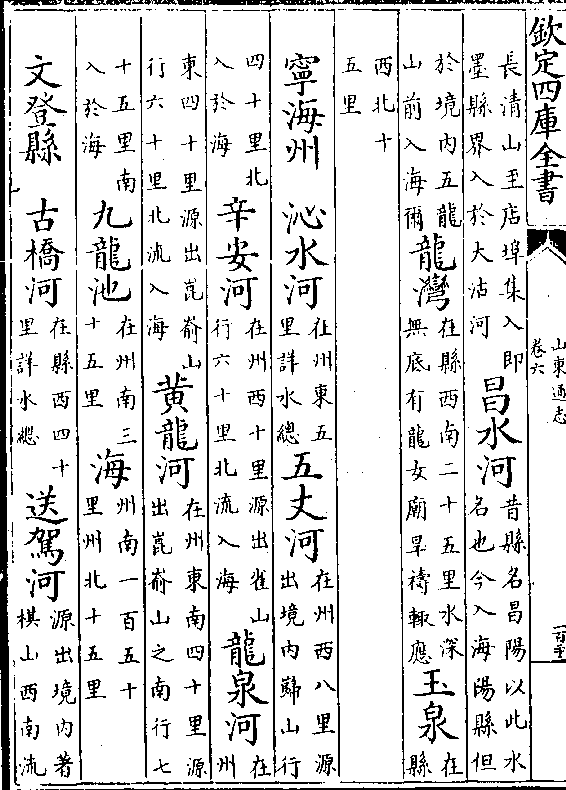 欽定四庫全書
山東通志
卷六
長清山至店埠集入即
墨縣界入於大沽河
昌水河
昔縣名昌陽以此水
名也今入海陽縣但
於境内五龍
山前入海爾
龍灣
在縣西南二十五里水深
無底有龍女廟旱禱輒應
玉泉
在
縣
西北十
五里
寧海州
沁水河
在州東五
里詳水總
五丈河
在州西八里源
出境内歸山行
四十里北
入於海
辛安河
在州西十里源出雀山
行六十里北流入海
龍泉河
在
州
東四十里源出崑嵛山
行六十里北流入海
黄龍河
在州東南四十里源
出崑嵛山之南行七
十五里南
入於海
九龍池
在州南三
十五里
海
州南一百五十
里州北十五里
文登縣
古橋河
在縣西四十
里詳水總
送駕河
源出境内著
棋山西南流